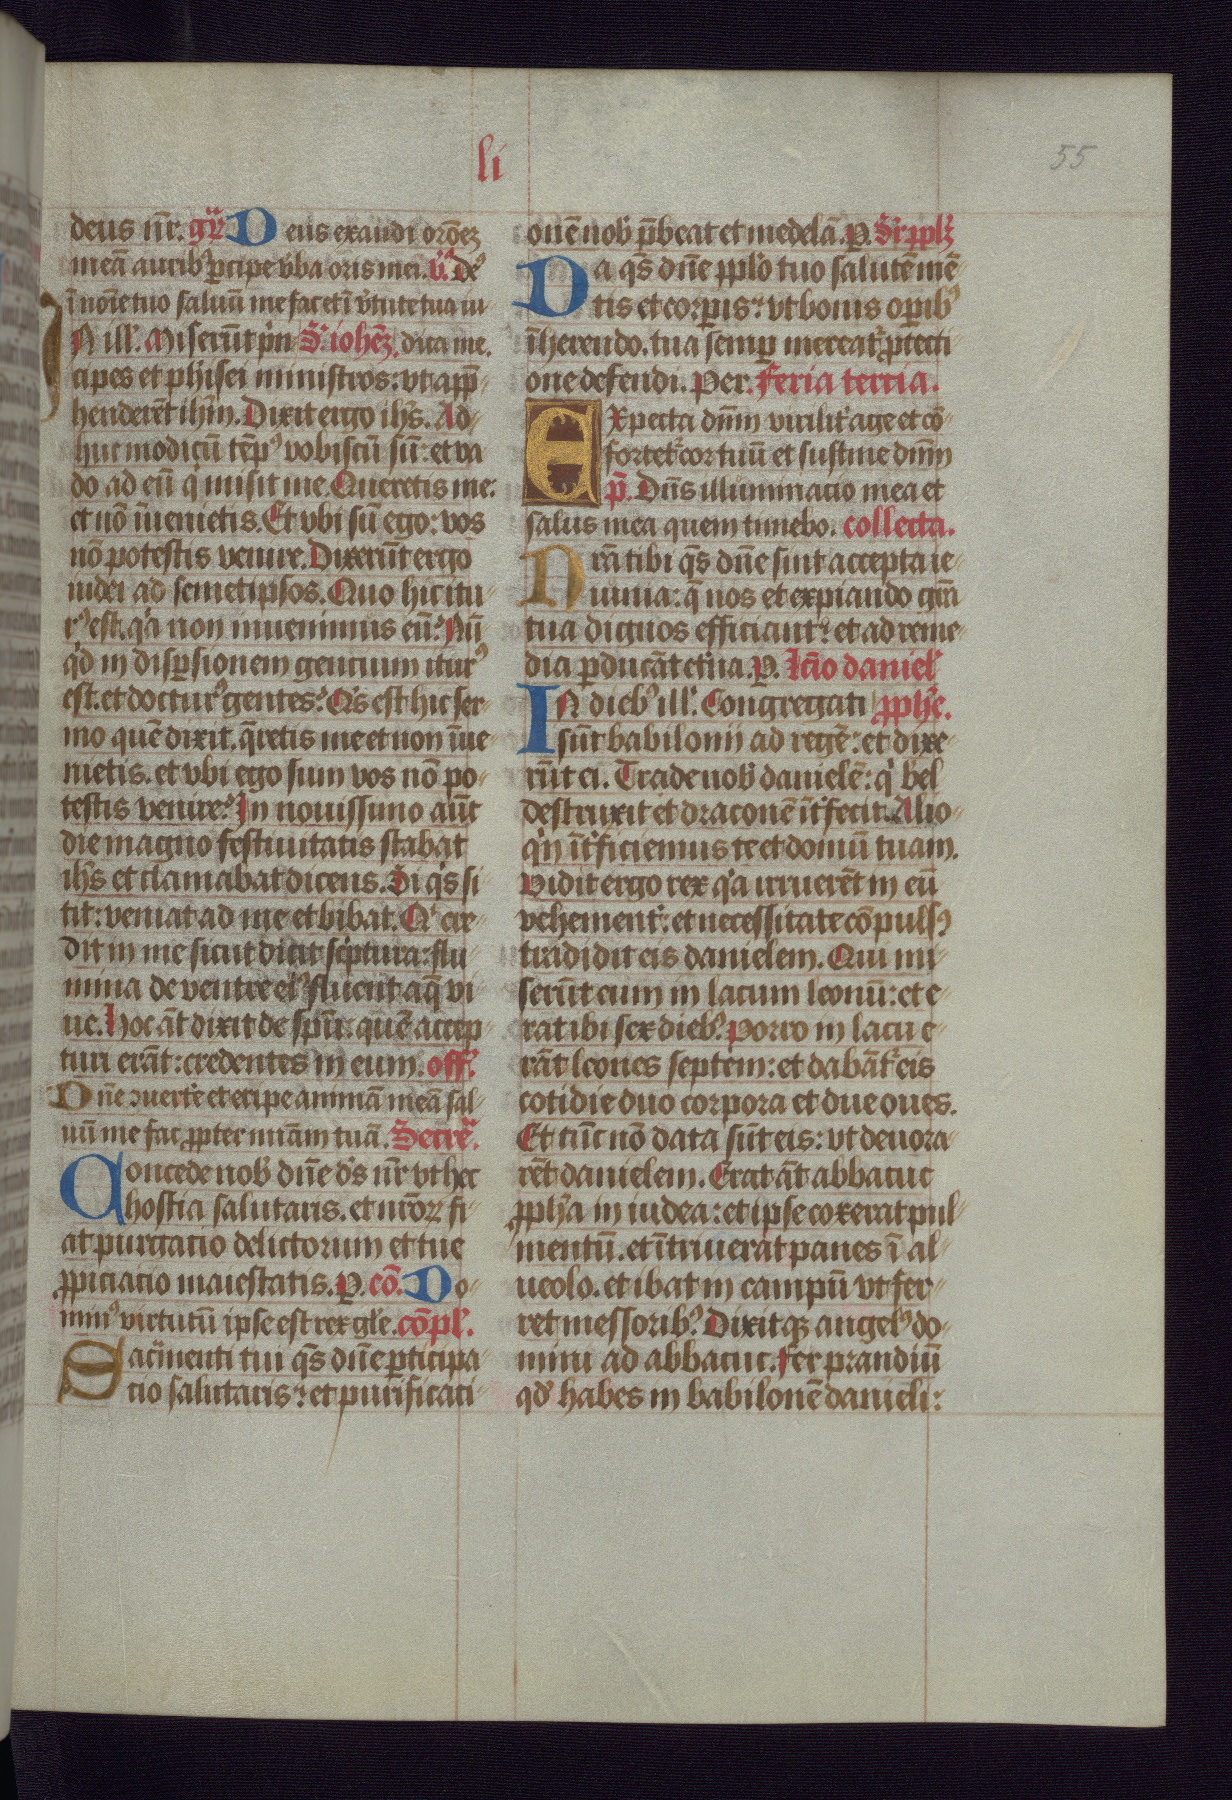 li
55
deus nr̄. gr̄. Deus exaudi orōeꝫ
meā aurib; ꝑcipe v̄ba oris mei. v̄. De
ī noīe tuo saluū me fac et ī v̄tute tua iu
dica me. S. iohēꝫ.
IN ill'. Miserūt p̄n
cipes et ph'isei ministros: vt app̄
henderēt ih̄m. Dixit ergo ih̄s. Ad
huc modicū tēp9 vobiscū sū: et va
do ad eū q̇ misit me. Queretis me:
et nō īuenietis. Et vbi sū ego: vos
nō potestis venire. Dixerūt ergo
iudei ad semetipsos. Quo hic itu
r9 est. q̇a non inuenimus eū? Nū
qḋ in disꝑsionem gencium itur9
est. et doctur9 gentes? Q̇s est hic ser
mo quē dixit. q̄retis me et non īue
nietis. et vbi ego sum vos nō po
testis venire? In nouissimo aūt
die magno festiuitatis stabat
ih̄s et clamabat dicens. Si q̇s si
tit: veniat ad me et bibat. Q̇ cre
dit in me sicut dicit sc̓ptura: flu
mina de ventre ei9 fluent aq̄ vi
ue. Hoc āt dixit de sp̄u: quē accep
turi erāt: credentes in eum. off.
Dn̄e ɔuerte et eripe animā meā sal
uū me fac ꝓpter mīam tuā. Secre.
Concede nob' dn̄e ds̄ nr̄ vt hec
hostia salutaris. et nrōꝝ fi
at purgacio delictorum et tue
ꝓpiciacio maiestatis. P. cō. Do
min9 virtutū ipse est rex gl'e. cōpl'.
Sacr̄menti tui qs̄ dn̄e ꝑticipa
tio salutaris: et purificati
onē nob' p̄beat et medelā. P. Sr̄ pplꝫ
Da qs̄ dn̄e pplo tuo salutē mē
tis et corꝑis: vt bonis oꝑib9
īherendo. tua semꝑ mereat' ꝓtecti
one defendi. Per. Feria tercia.
Expecta dn̄m virilit' age et cō
fortet' cor tuū et sustine dn̄m
p̄. Dn̄s illuminacio mea et
salus mea quem timebo. collecta.
Nr̄a tibi qs̄ dn̄e sint accepta ie
iunia: q̄ nos et expiando gr̄a
tua dignos efficiant: et ad reme
dia ꝑducāt et'na. P. Lc̄io daniel'
ꝓph'e.
IN dieb9 ill'. Congregati
sūt babilonij ad regē: et dixe
rūt ei. Trade nob' danielē: q̇ bel
destruxit et draconē īt'fecit. Alio
q̇n īt'ficiemus te et domū tuam.
Vidit ergo rex q̇a irruerēt in eū
vehement': et necessitate cōpuls9
tradidit eis danielem. Qui mi
serūt eum in lacum leonū: et e
rat ibi sex dieb9. Porro in lacu e
rāt leones septem: et dabāt' eis
cotidie duo corpora et due oues.
Et tūc nō data sūt eis: vt deuora
rēt danielem. Erat āt abbacuc
ꝓph'a in iudea: et ipse coxerat pul
mentū. et īt'uerat panes ī al
ueolo. et ibat in campū vt fer
ret messorib9. Dixitqꝫ angel9 do
mini ad abbacuc. Fer prandiū
qd' habes in babilonē danieli: